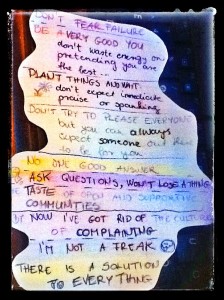 DON'T FEAR FAILURE
BE A VERY GOOD YOU
don't waste energy on
pretending you are
the best...
PLANT THINGS AND WAIT
don't expect immediate
praise or spanking
DON'T TRY TO PLEASE EVERYONE
but you can always
expect someone out there
to be for you
NO ONE GOOD ANSWER
ASK QUESTIONS, WON'T LOSE A THING
TASTE OF OPEN AND SUPPORTIVE
COMMUNITIES
BUT NOW I'VE GOT RID OF THE CULTURE
OF COMPLAINING
I'M NOT A FREAK
THERE IS A SOLUTION
TO EVERYTHING